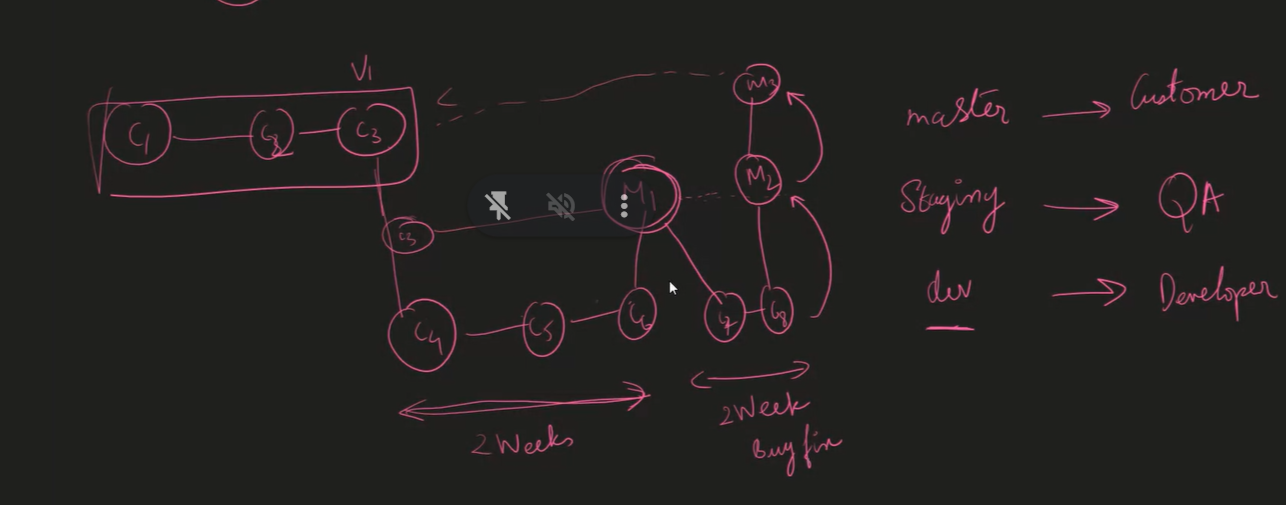 V1
C1
C2
C3
M3
M1
M2
C3
C4
C5
C6
C7
C8
2 Weeks
2 Week
Bug fix
master → Customer
Staging → QA
dev → Developer